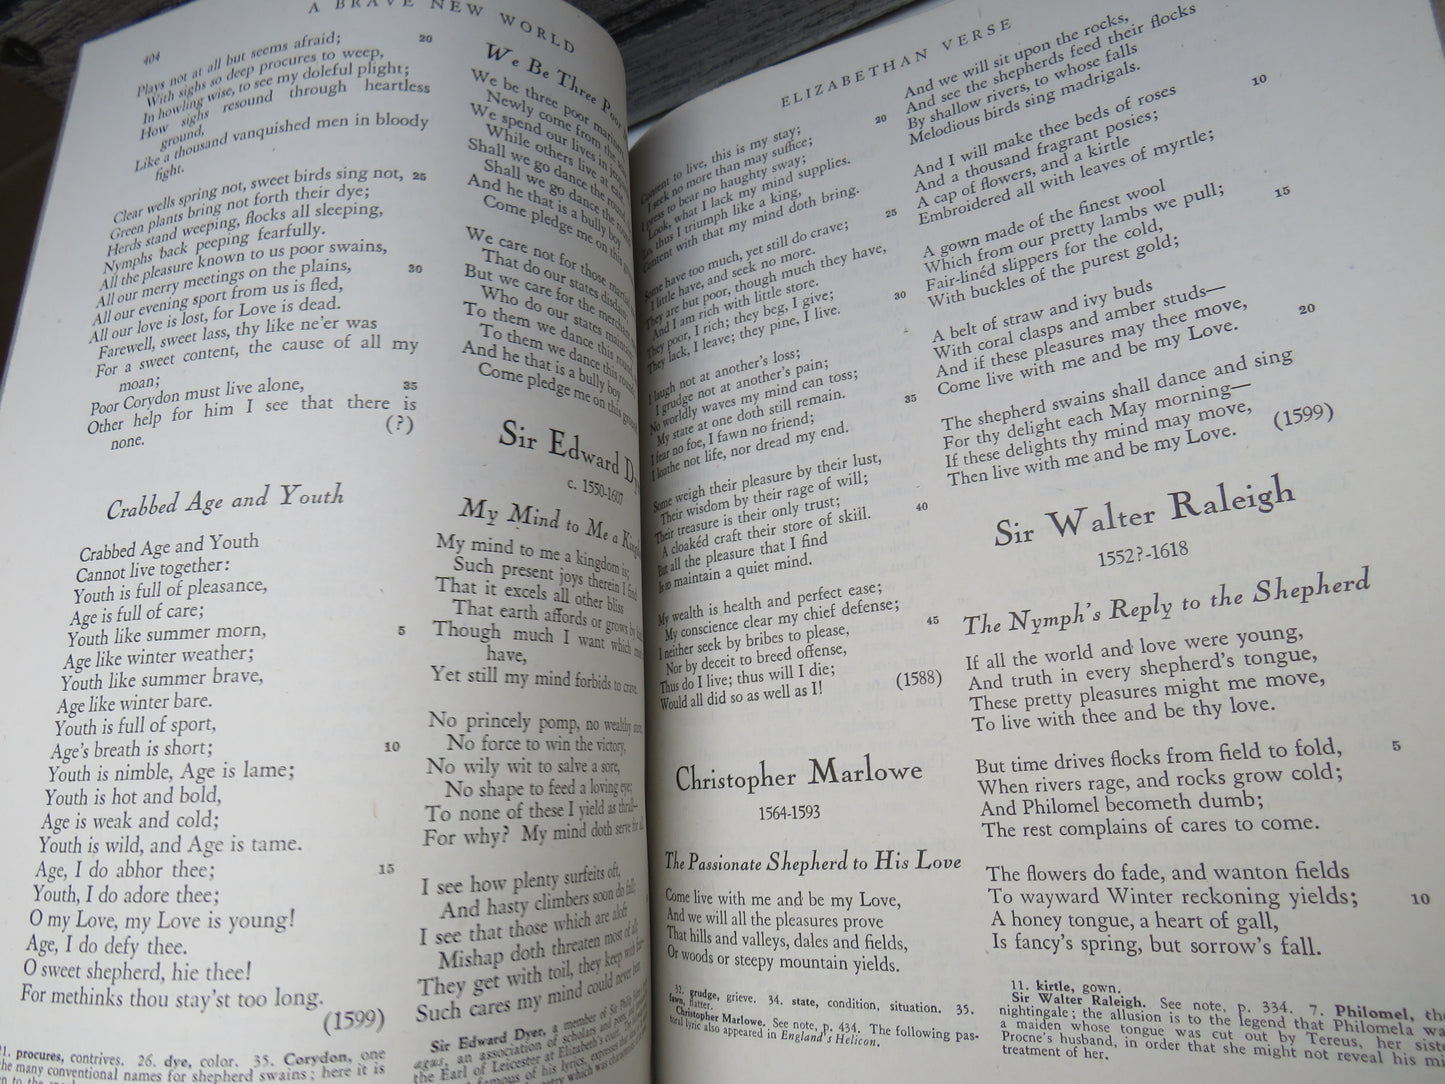 404
A BRAVE NEW WORLD
Plays not at all but seems afraid; 20
With sighs so deep procures to weep,
In howling wise, to see my doleful plight;
How sighs resound through heartless
ground,
Like a thousand vanquished men in bloody
fight.
Clear wells spring not, sweet birds sing not, 25
Green plants bring not forth their dye;
Herds stand weeping, flocks all sleeping,
Nymphs back peeping fearfully.
All the pleasure known to us poor swains,
All our merry meetings on the plains, 30
All our evening sport from us is fled,
All our love is lost, for Love is dead.
Farewell, sweet lass, thy like ne'er was
For a sweet content, the cause of all my
moan;
Poor Corydon must live alone, 35
Other help for him I see that there is
none. (?)
Crabbed Age and Youth
Crabbed Age and Youth
Cannot live together:
Youth is full of pleasance,
Age is full of care;
Youth like summer morn, 5
Age like winter weather;
Youth like summer brave,
Age like winter bare.
Youth is full of sport,
Age's breath is short; 10
Youth is nimble, Age is lame;
Youth is hot and bold,
Age is weak and cold;
Youth is wild, and Age is tame.
Age, I do abhor thee; 15
Youth, I do adore thee;
O my Love, my Love is young!
Age, I do defy thee.
O sweet shepherd, hie thee!
For methinks thou stay'st too long.
(1599)
21. procures, contrives. 26. dye, color. 35. Corydon, one
the many conventional names for shepherd swains; here it is
We Be Three Poor
We be three poor
Newly come from the
We spend our lives in
While others live at
Shall we go dance the round
Shall we go dance the
And he that is a bully boy
Come pledge me on this
We care not for those
That do our states
But we care for the merchant
Who do our states
To them we dance this round
To them we dance this
And he that is a bully boy
Come pledge me on this ground
Sir Edward
c. 1550-1607
My Mind to Me a
My mind to me a kingdom is;
Such present joys therein I find
That it excels all other bliss
That earth affords or grows by
Though much I want which
have,
Yet still my mind forbids to crave.
No princely pomp, no wealthy
No force to win the victory,
No wily wit to salve a sore,
No shape to feed a loving eye;
To none of these I yield as thrall—
For why? My mind doth serve for all.
I see how plenty surfeits oft,
And hasty climbers soon do fall;
I see that those which are aloft
Mishap doth threaten most of all;
They get with toil, they keep with
Such cares my mind could never
Sir Edward Dyer, a member of Sir Philip
an association of scholars and
the Earl of Leicester at Elizabeth's
of his lyrics, expresses the
ELIZABETHAN VERSE
Content to live, this is my stay; 20
I seek no more than may suffice;
I press to bear no haughty sway;
Look, what I lack my mind supplies.
Lo, thus I triumph like a king,
Content with that my mind doth bring.
Some have too much, yet still do crave; 25
I little have, and seek no more.
They are but poor, though much they have,
And I am rich with little store.
They poor, I rich; they beg, I give;
They lack, I leave; they pine, I live. 30
I laugh not at another's loss;
I grudge not at another's pain;
No worldly waves my mind can toss;
My state at one doth still remain.
I fear no foe, I fawn no friend; 35
I loathe not life, nor dread my end.
Some weigh their pleasure by their lust,
Their wisdom by their rage of will;
Their treasure is their only trust;
A cloakéd craft their store of skill. 40
But all the pleasure that I find
Is to maintain a quiet mind.
My wealth is health and perfect ease;
My conscience clear my chief defense;
I neither seek by bribes to please, 45
Nor by deceit to breed offense,
Thus do I live; thus will I die;
Would all did so as well as I! (1588)
Christopher Marlowe
1564-1593
The Passionate Shepherd to His Love
Come live with me and be my Love,
And we will all the pleasures prove
That hills and valleys, dales and fields,
Or woods or steepy mountain yields.
32. grudge, grieve. 34. state, condition, situation. 35.
fawn, flatter.
Christopher Marlowe. See note, p. 434. The following pas-
toral lyric also appeared in England's Helicon.
And we will sit upon the rocks,
And see the shepherds feed their flocks
By shallow rivers, to whose falls
Melodious birds sing madrigals.
And I will make thee beds of roses
And a thousand fragrant posies; 10
A cap of flowers, and a kirtle
Embroidered all with leaves of myrtle;
A gown made of the finest wool
Which from our pretty lambs we pull;
Fair-linéd slippers for the cold, 15
With buckles of the purest gold;
A belt of straw and ivy buds
With coral clasps and amber studs—
And if these pleasures may thee move,
Come live with me and be my Love. 20
The shepherd swains shall dance and sing
For thy delight each May morning—
If these delights thy mind may move,
Then live with me and be my Love. (1599)
Sir Walter Raleigh
1552?-1618
The Nymph's Reply to the Shepherd
If all the world and love were young,
And truth in every shepherd's tongue,
These pretty pleasures might me move,
To live with thee and be thy love.
But time drives flocks from field to fold, 5
When rivers rage, and rocks grow cold;
And Philomel becometh dumb;
The rest complains of cares to come.
The flowers do fade, and wanton fields
To wayward Winter reckoning yields; 10
A honey tongue, a heart of gall,
Is fancy's spring, but sorrow's fall.
11. kirtle, gown.
Sir Walter Raleigh. See note, p. 334. 7. Philomel, the
nightingale; the allusion is to the legend that Philomela was
a maiden whose tongue was cut out by Tereus, her sister
Procne's husband, in order that she might not reveal his
treatment of her.